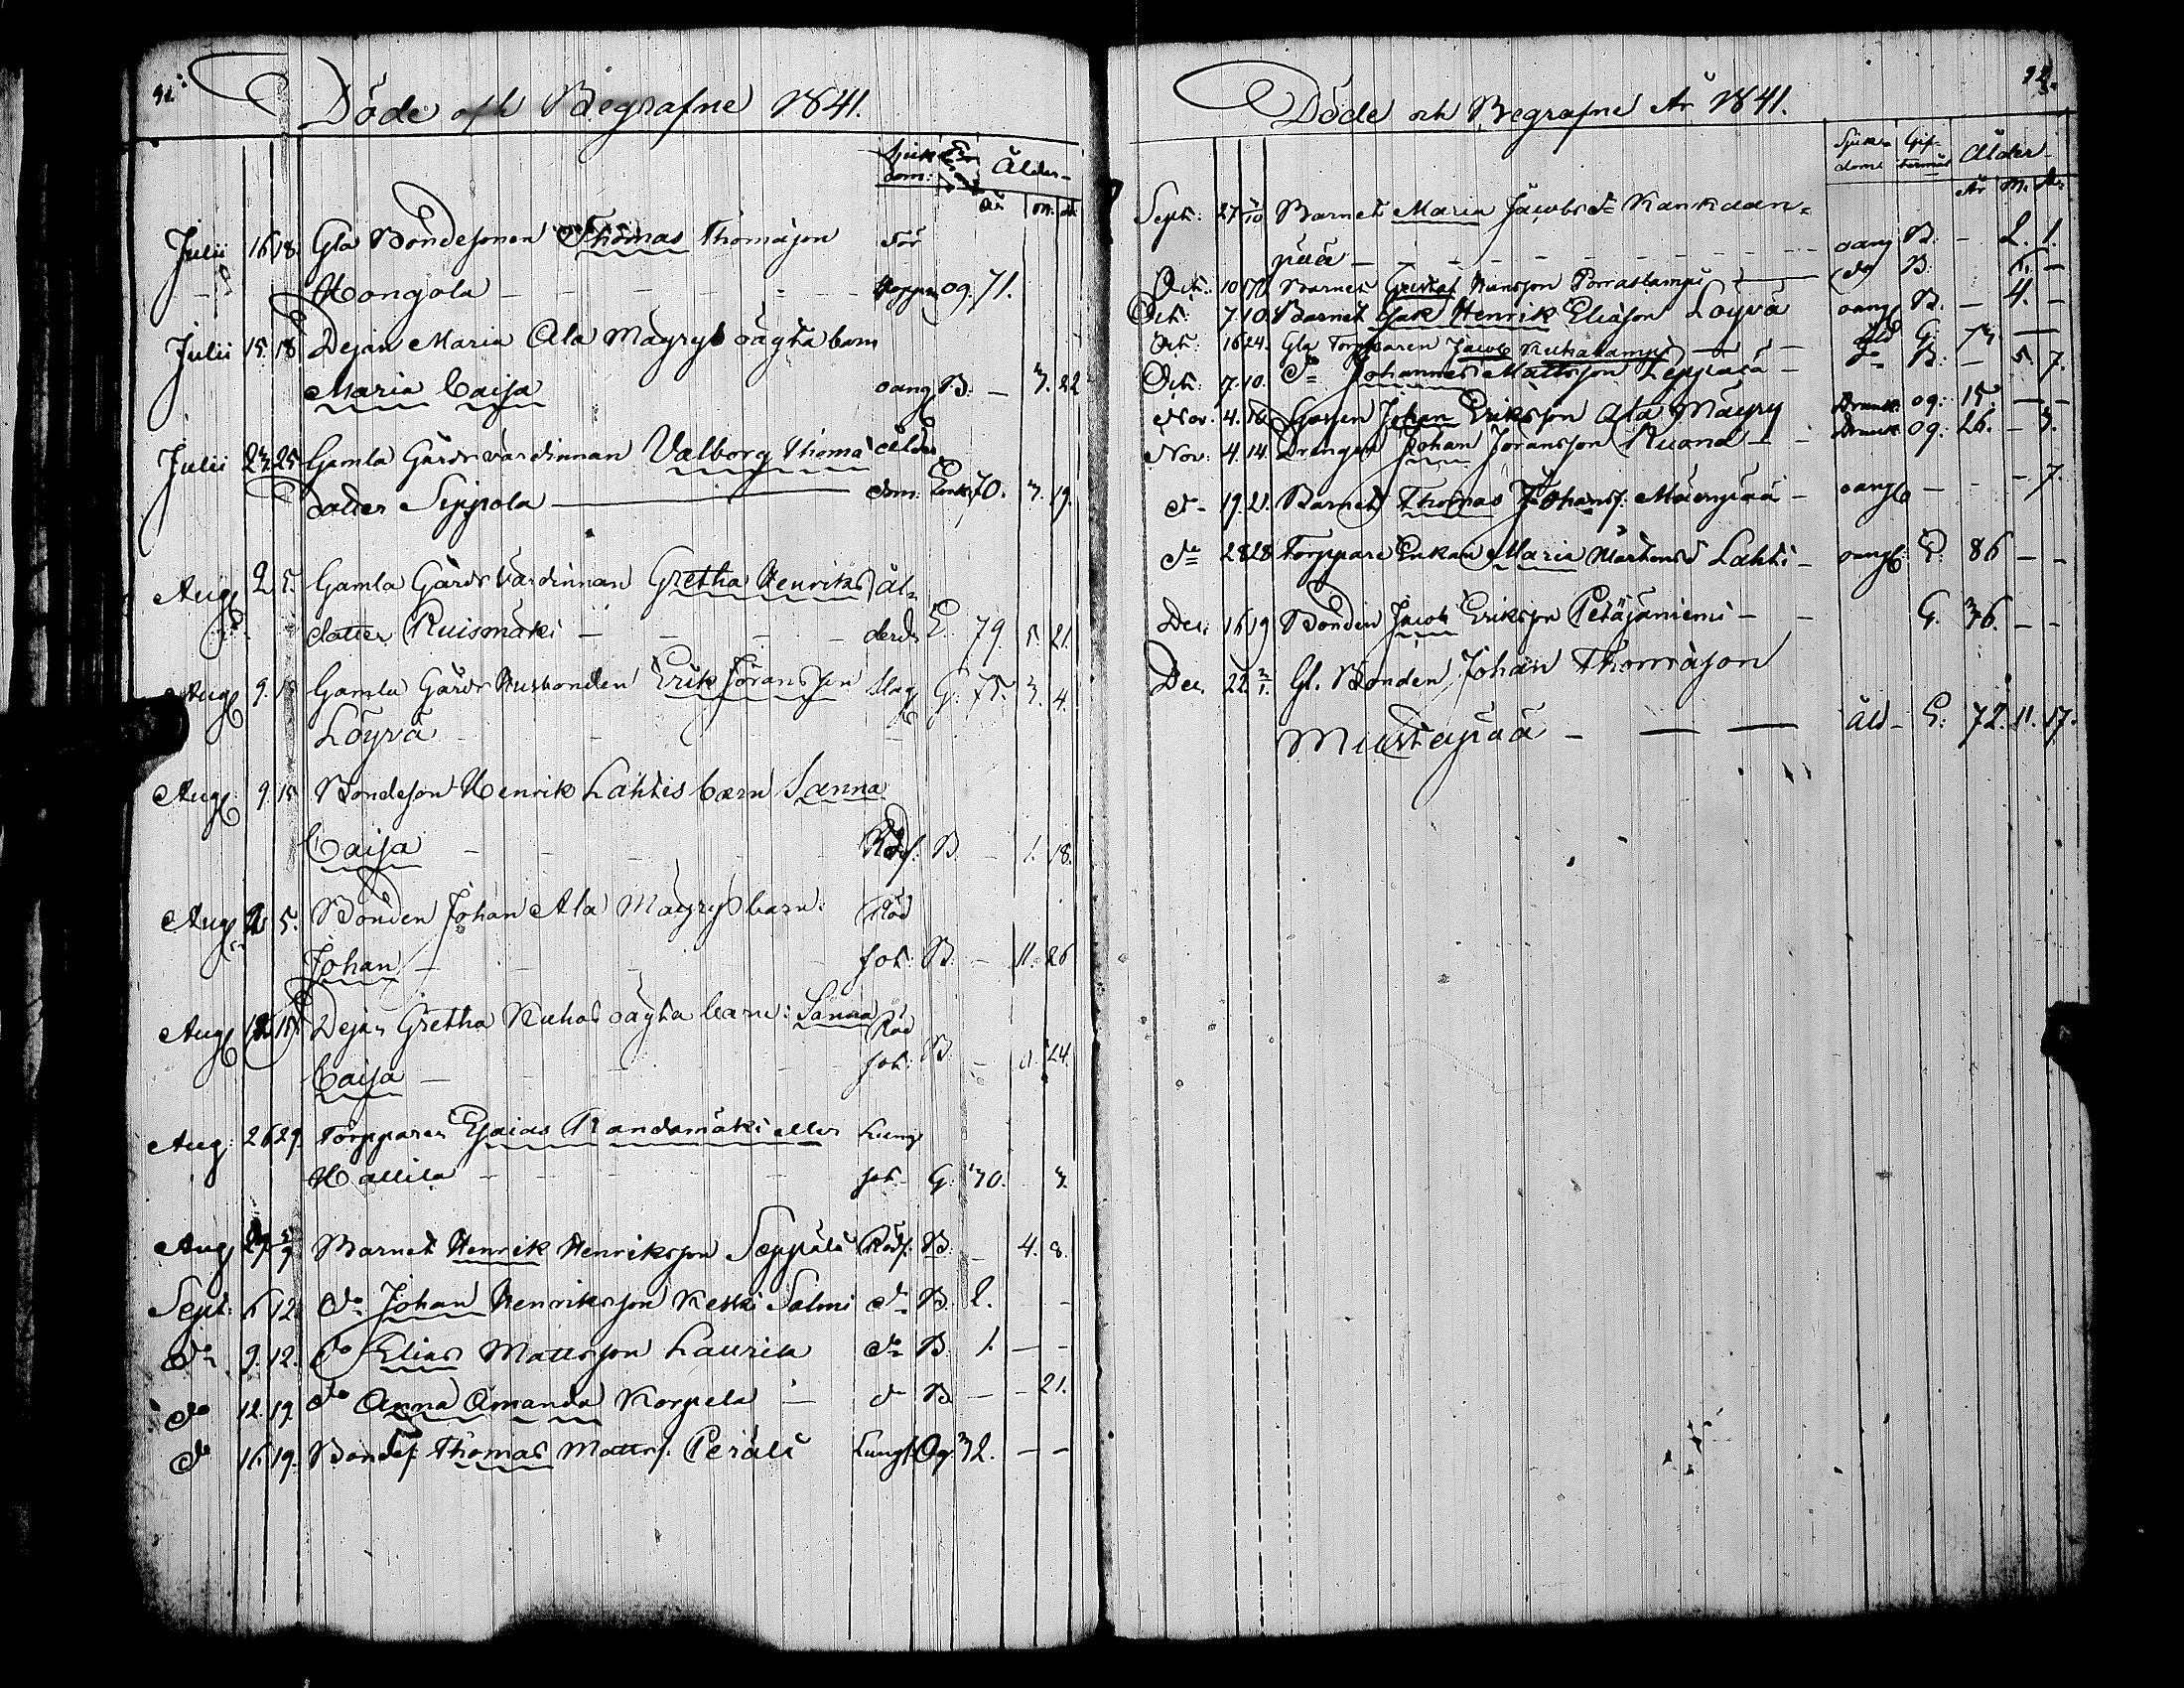 92.
Döde och Begrafne 1841.
Sjuk
dom: Ålder
År m. d.
Julii 16 18. Gla Bondesonen Thomas Thomason För
Hongola — — — — stoppn. og. 71.
Julii 15. 18 Pejan Maria Ala Mäyrys oägta barn
Maria Caisa oang B. — 3. 22
Julii 23. 25 Gamla Gårdsvärdinnan Valborg Thomæ ålder
dotter Seppola — dom. Enk. 70. 3. 19.
Aug 2. 5. Gamla Gårdsvärdinnan Gretha Henriks ål-
dotter Ruismäki — — — derd. E. 79. 5. 21.
Aug 9. 15 Gamla Gårds Husbonden Erik Jöransson Slag G. 75. 3. 4.
Löyvä
Aug 9. 15 Bondeson Henrik Lahtis barn Sanna
Caisa — — — Röds. B. — 1. 18.
Aug 2. 5. Bonden Johan Ala Mäyrys barn: Röd
Johan — — — sot. B. — 11. 26
Aug 12. 15. Pejan Gretha Kuhas oägta barn: Sanna Röd
Caisa — — sot: B — 11. 24.
Aug: 26 29. Torpparen Esaias Randamäki eller Lung
Hallila — — — sot. G. 30. 3.
Aug 29 5/9 Barnet Henrik Henriksson Seppälä Röds. B. — 4. 8.
Sept: 6 12. do Johan Henriksson Keski Salmi do B. 2. —
do 9. 12. do Elias Mattsson Laurila do B. 1. — —
do 12. 19. do Anna Amanda Korpela — do B — — 21.
do 16. 19. Bondes. Thomas Matts. Perälä Lungs. Og. 32. — —
93.
Döde och Begrafne År 1841.
Sjuk- Gif- Ålder
dom termål
År M. D.
Sept: 27 3/10 Barnet Maria Jacobsdr Kankaan-
pää — — — — oang B. — 2. 1.
Oct: 10 17. Barnet Gustaf Hansson Porraslampi — do B. 6. —
Oct: 7. 10. Barnet Isak Henrik Eliasson Löyvä oang B. — 4. —
Oct: 16 24. Gla Torpparen Jacob Kuhalampi — Åld G. 73. —
Oct: 7. 10. do Johannes Mattsson Leppälä — do B. — 5. 7.
Nov. 4. Gossen Johan Eriksson Ala Mäyry Drunk. og. 15. — —
Nov: 4. 14. Drengen Johan Jöransson Ruona — Drunk og. 26. — 3.
do 19. 21. Barnet Thomas Johans. Mäenpää — oang — — — 7.
do 28 28 Torppare Enkan Maria Mårtensd. Lahti — oang E. 86 — —
Dec. 16 19 Bonden Jacob Eriksson Petäjäniemi — — G. 36. — —
Dec. 22. 2/1. Gl. Bonden Johan Thomasson
Mustapää — — — åld — E. 72. 11. 17.